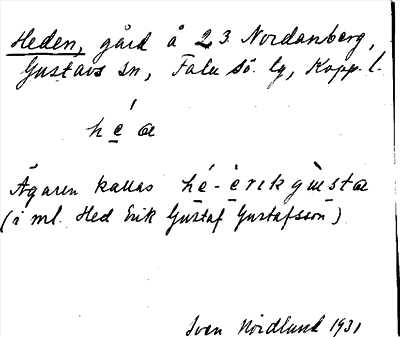 Heden, gård å 2 3 Nordanberg,
Gustavs sn, Falu sö. tg, Kopp. l.
hé̱æ
Ägaren kallas hé-èrɪkgùsta
(i ml. Hed Erik Gustaf Gustafsson)
Sven Nordlund 1931